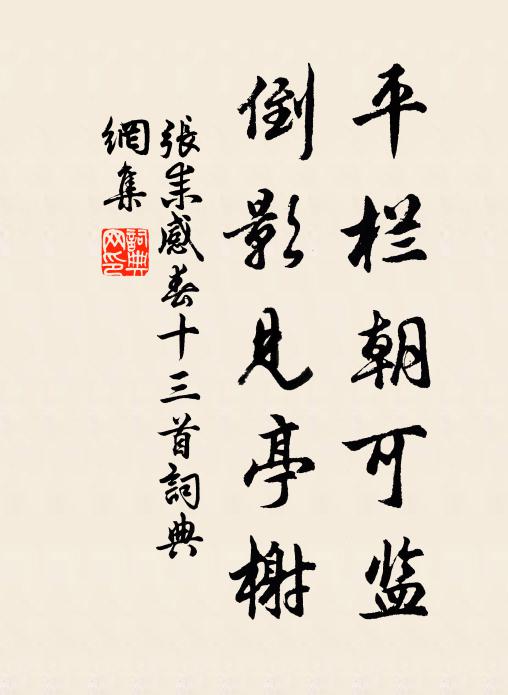 平栏朝可监
倒影见亭榭
張耒感春十三首詞典
網集
詞典
网印